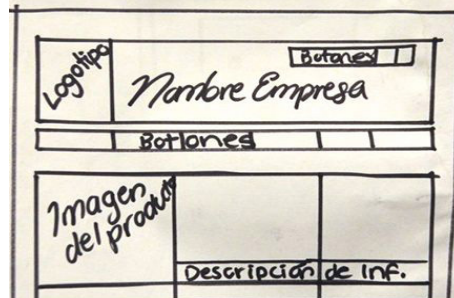 Logotipo
Botones
Nombre Empresa
Botlones
Imagen
del producto
Descripción de Inf.